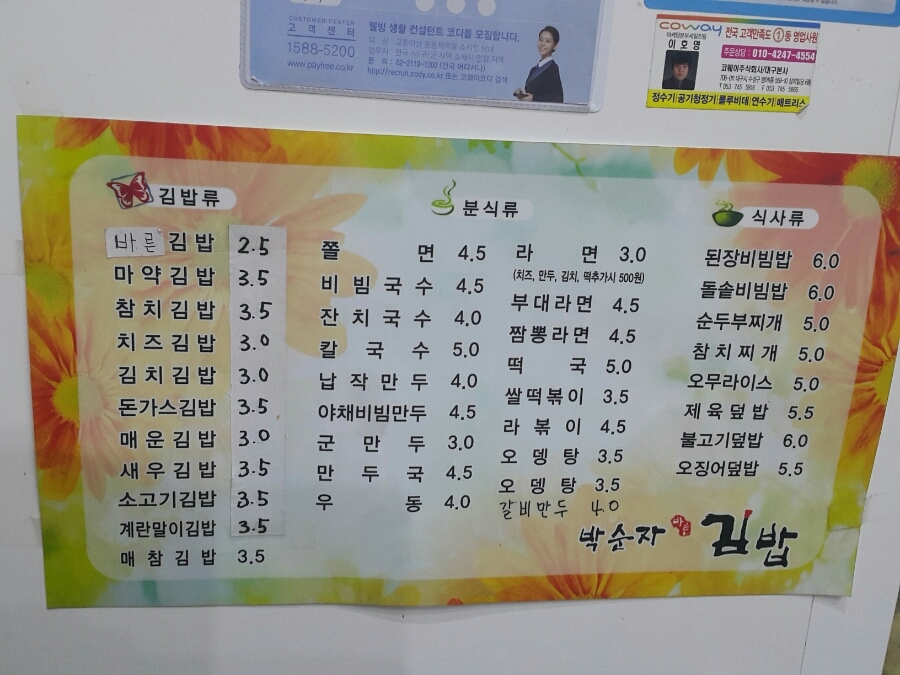 CUSTOMER CENTER
고객센터
1588-5200
www.payfree.co.kr
웰빙 생활 컨설턴트 코디를 모집합니다.
문 의 : 02-2119-1200 (전국 어디서나)
http://recruit.cody.co.kr 또는 코웨이코디 검색
coway 전국 고객만족도 1등 영업사원
이호영
주문상담 : 010-4247-4554
코웨이주식회사/대구본사
정수기|공기청정기|룰루비데|연수기|매트리스
김밥류
바른김밥 2.5
마약김밥 3.5
참치김밥 3.5
치즈김밥 3.0
김치김밥 3.0
돈가스김밥 3.5
매운김밥 3.0
새우김밥 3.5
소고기김밥 3.5
계란말이김밥 3.5
매참김밥 3.5
분식류
쫄면 4.5
비빔국수 4.5
잔치국수 4.0
칼국수 5.0
납작만두 4.0
야채비빔만두 4.5
군만두 3.0
만두국 4.5
우동 4.0
라면 3.0
(치즈, 만두, 김치, 떡추가시 500원)
부대라면 4.5
짬뽕라면 4.5
떡국 5.0
쌀떡볶이 3.5
라볶이 4.5
오뎅탕 3.5
오뎅탕 3.5
갈비만두 4.0
식사류
된장비빔밥 6.0
돌솥비빔밥 6.0
순두부찌개 5.0
참치찌개 5.0
오무라이스 5.0
제육덮밥 5.5
불고기덮밥 6.0
오징어덮밥 5.5
박순자 바른 김밥